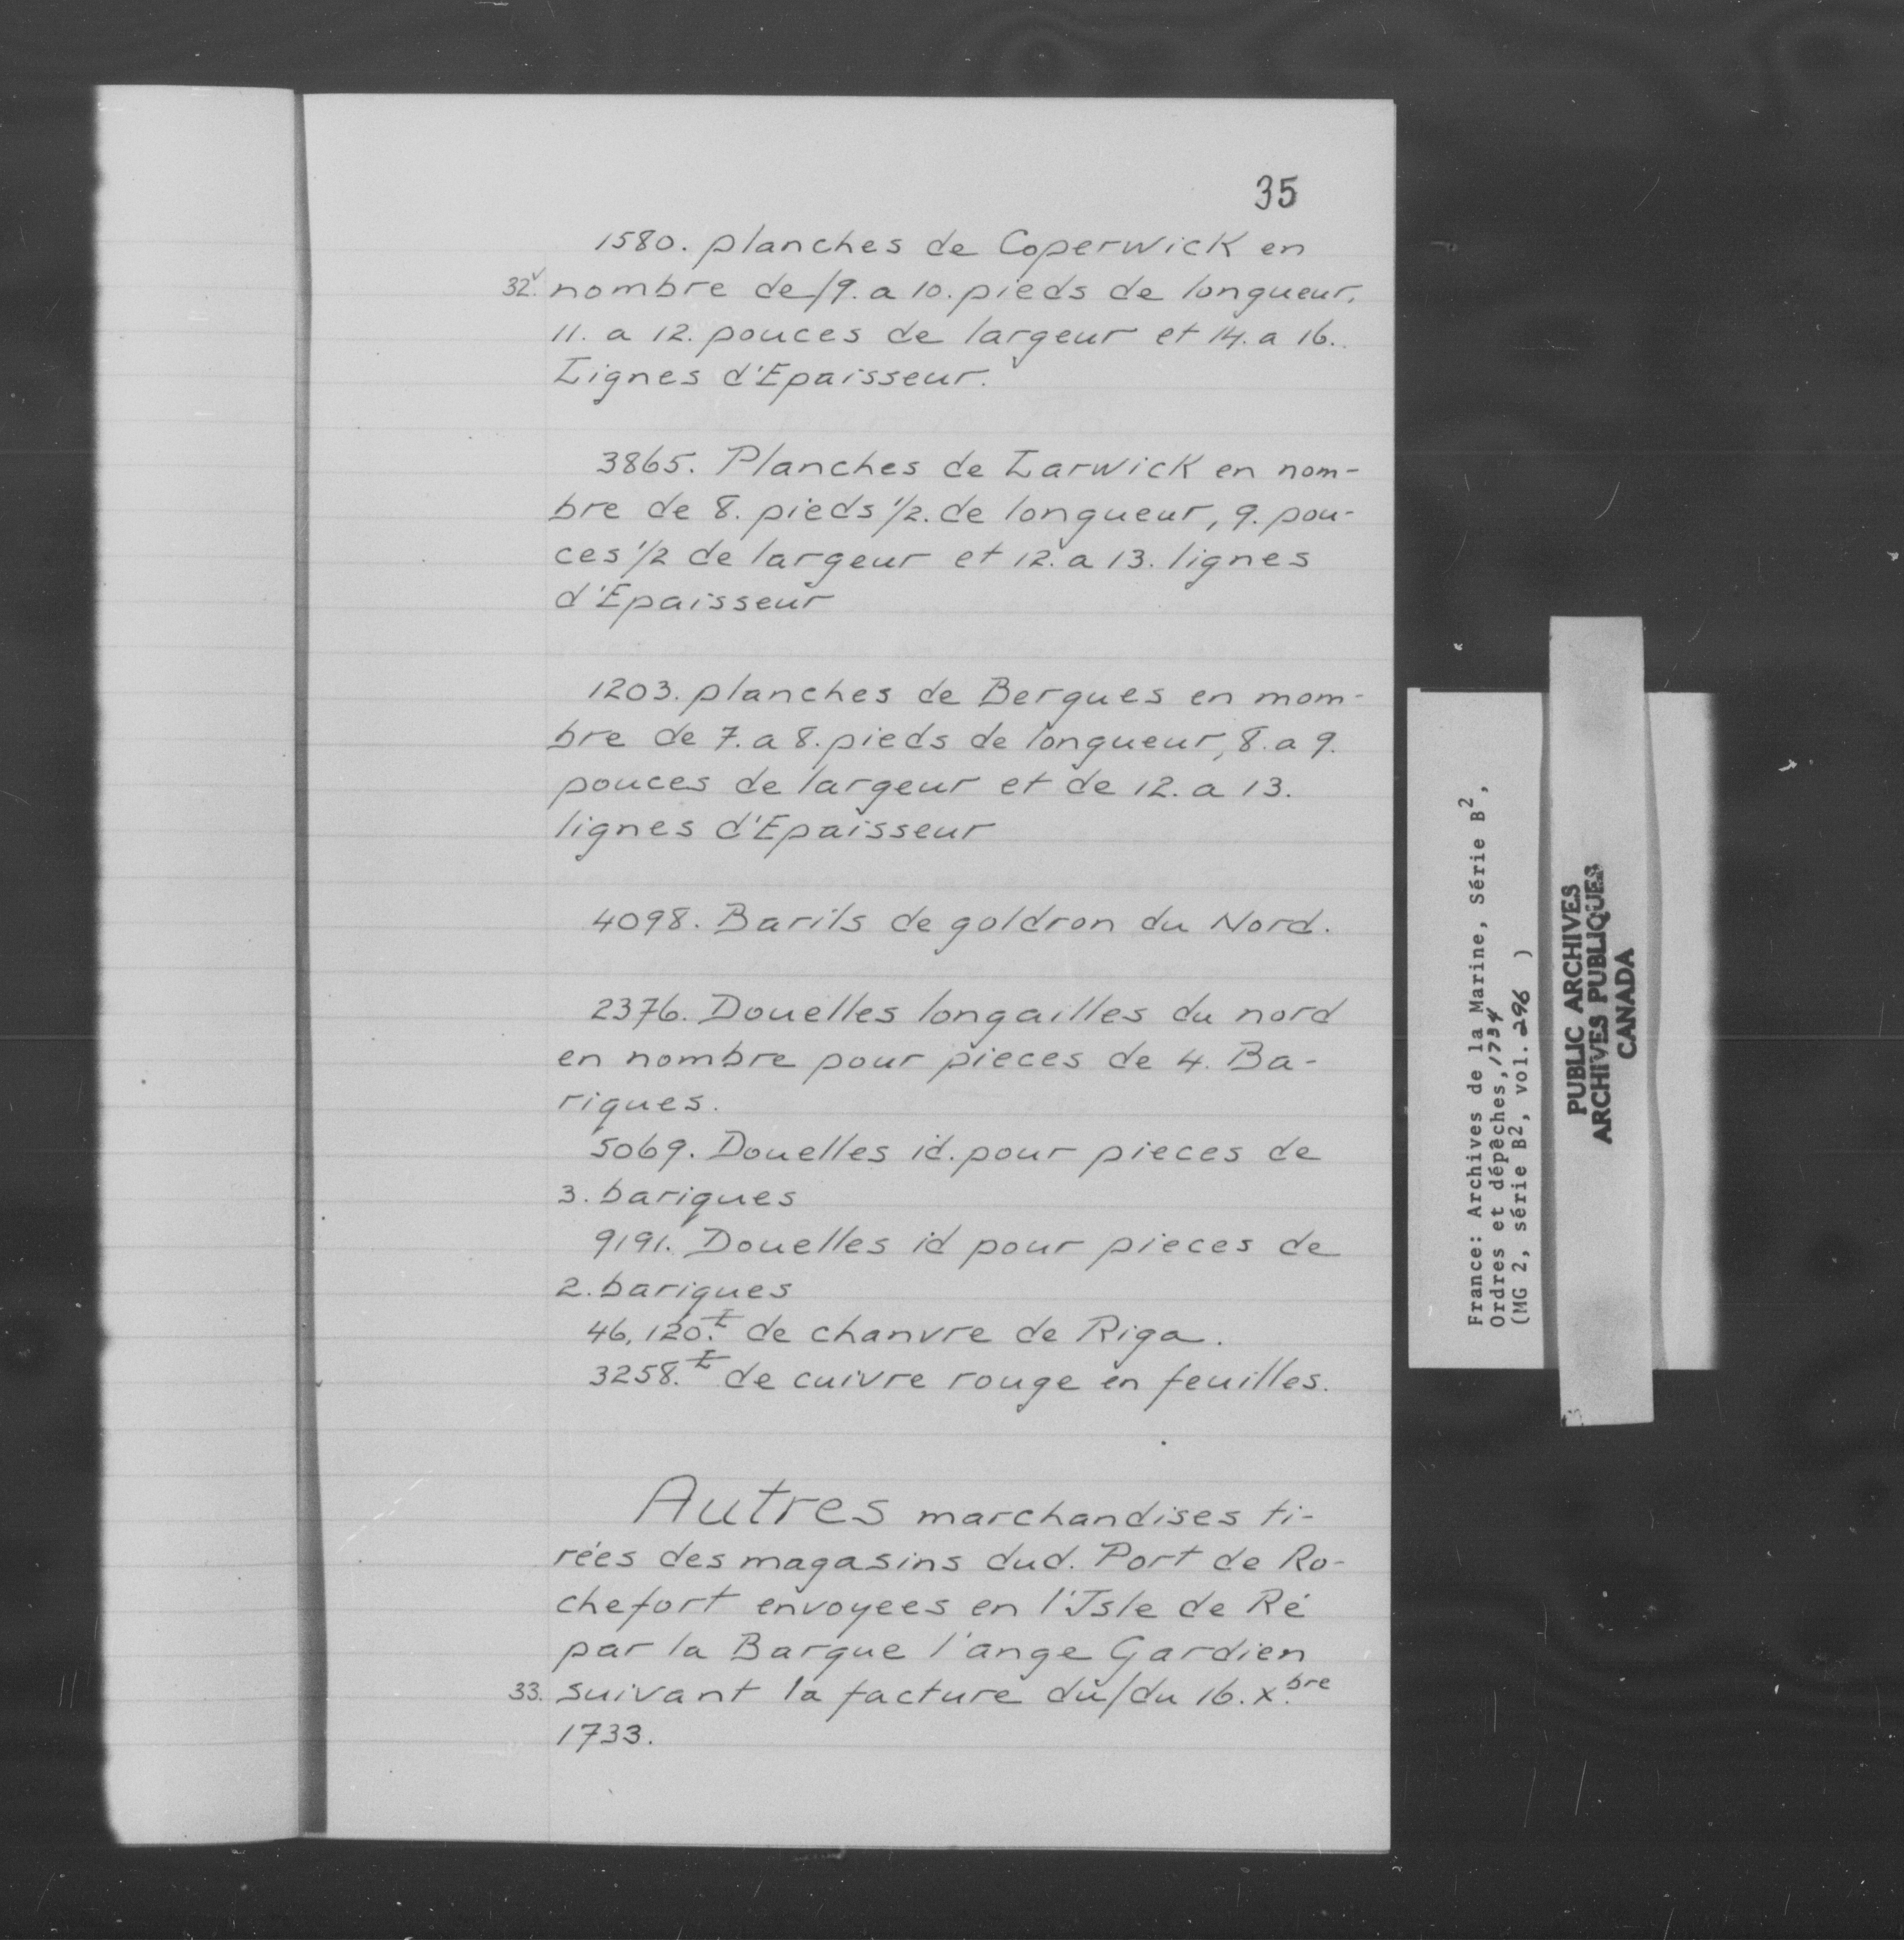 35
1580. planches de Coperwick en
32v. nombre de/9. a 10. pieds de longueur,
11. a 12. pouces de largeur et 14. a 16.
Lignes d'Epaisseur.
3865. Planches de Larwick en nom-
bre de 8. pieds 1/2. de longueur, 9. pou-
ces 1/2 de largeur et 12. a 13. lignes
d'Epaisseur
1203. planches de Bergues en mom-
bre de 7. a 8. pieds de longueur, 8. a 9.
pouces de largeur et de 12. a 13.
lignes d'Epaisseur
4098. Barils de goldron du Nord.
2376. Douelles longailles du nord
en nombre pour pieces de 4. Ba-
riques.
5069. Douelles id. pour pieces de
3. bariques
9191. Douelles id pour pieces de
2. bariques
46,120.ł de chanvre de Riga.
3258.ł de cuivre rouge en feuilles.
Autres marchandises ti-
rées des magasins dud. Port de Ro-
chefort envoyees en l'Isle de Ré
par la Barque l'ange Gardien
33. suivant la facture du/du 16. xbre
1733.
France: Archives de la Marine, Série B2,
Ordres et dépêches, 1734
(MG 2, série B2, vol. 296 )
PUBLIC ARCHIVES
ARCHIVES PUBLIQUES
CANADA